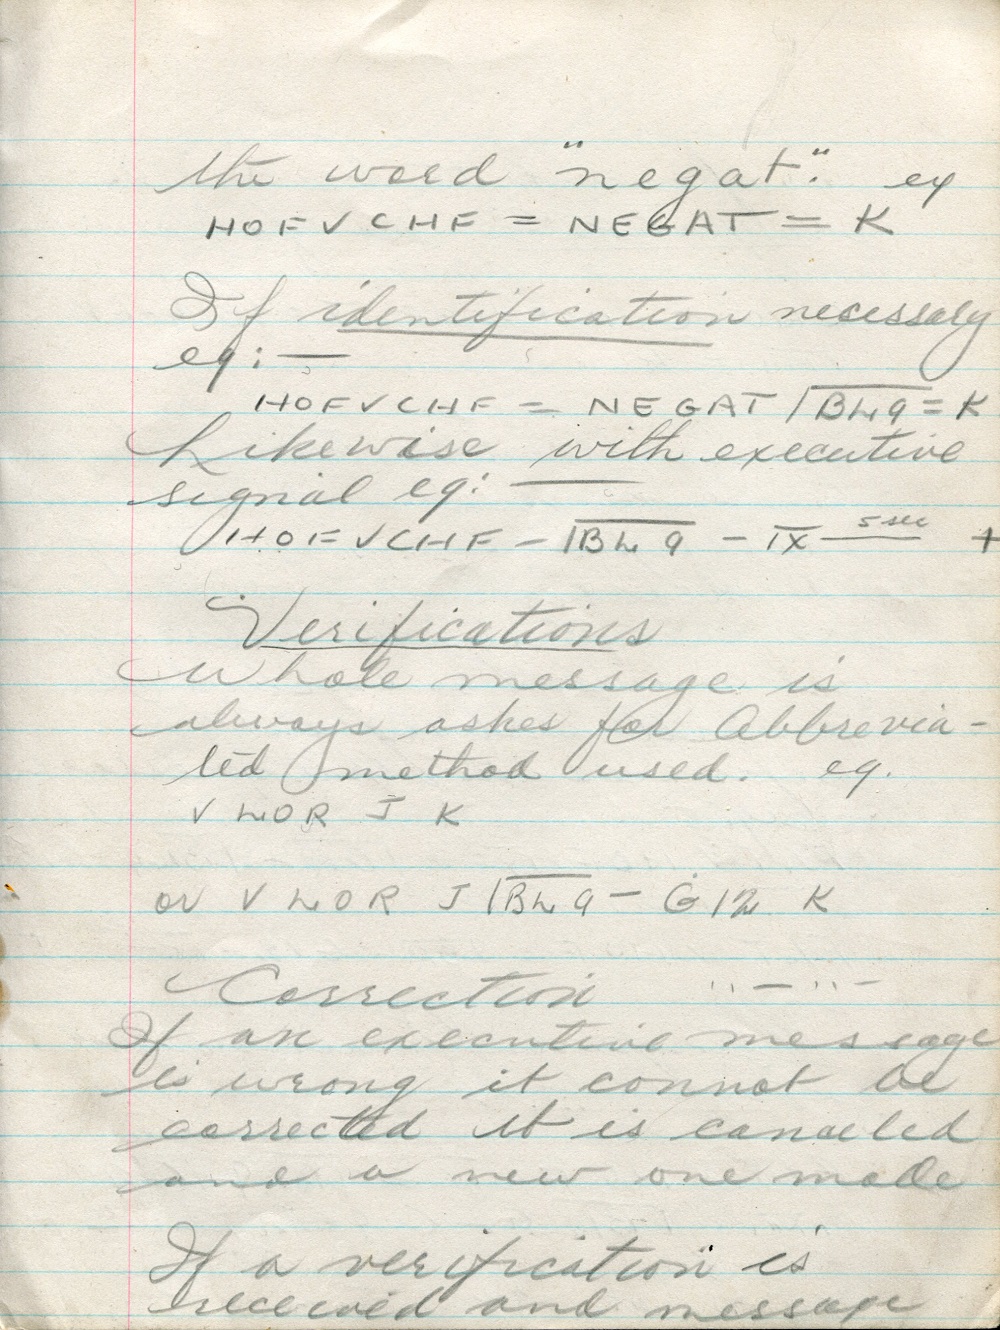 the word "negat." ex
HOF V CHF = NEGAT = K
If identification necessary
eg: —
HOF V CHF = NEGAT / BL9 = K
Likewise with executive
signal eg: —
HOF V CHF — / BL9 — IX 5 sec +
Verifications
Whole message is
always ashes for Abbrevia-
ted method used. eg.
V LOR J K
or V LOR J / BL9 — G 12 K
Correction " — " —
If an executive message
is wrong it connot be
corrected it is canceled
and a new one made
If a verification is
received and message